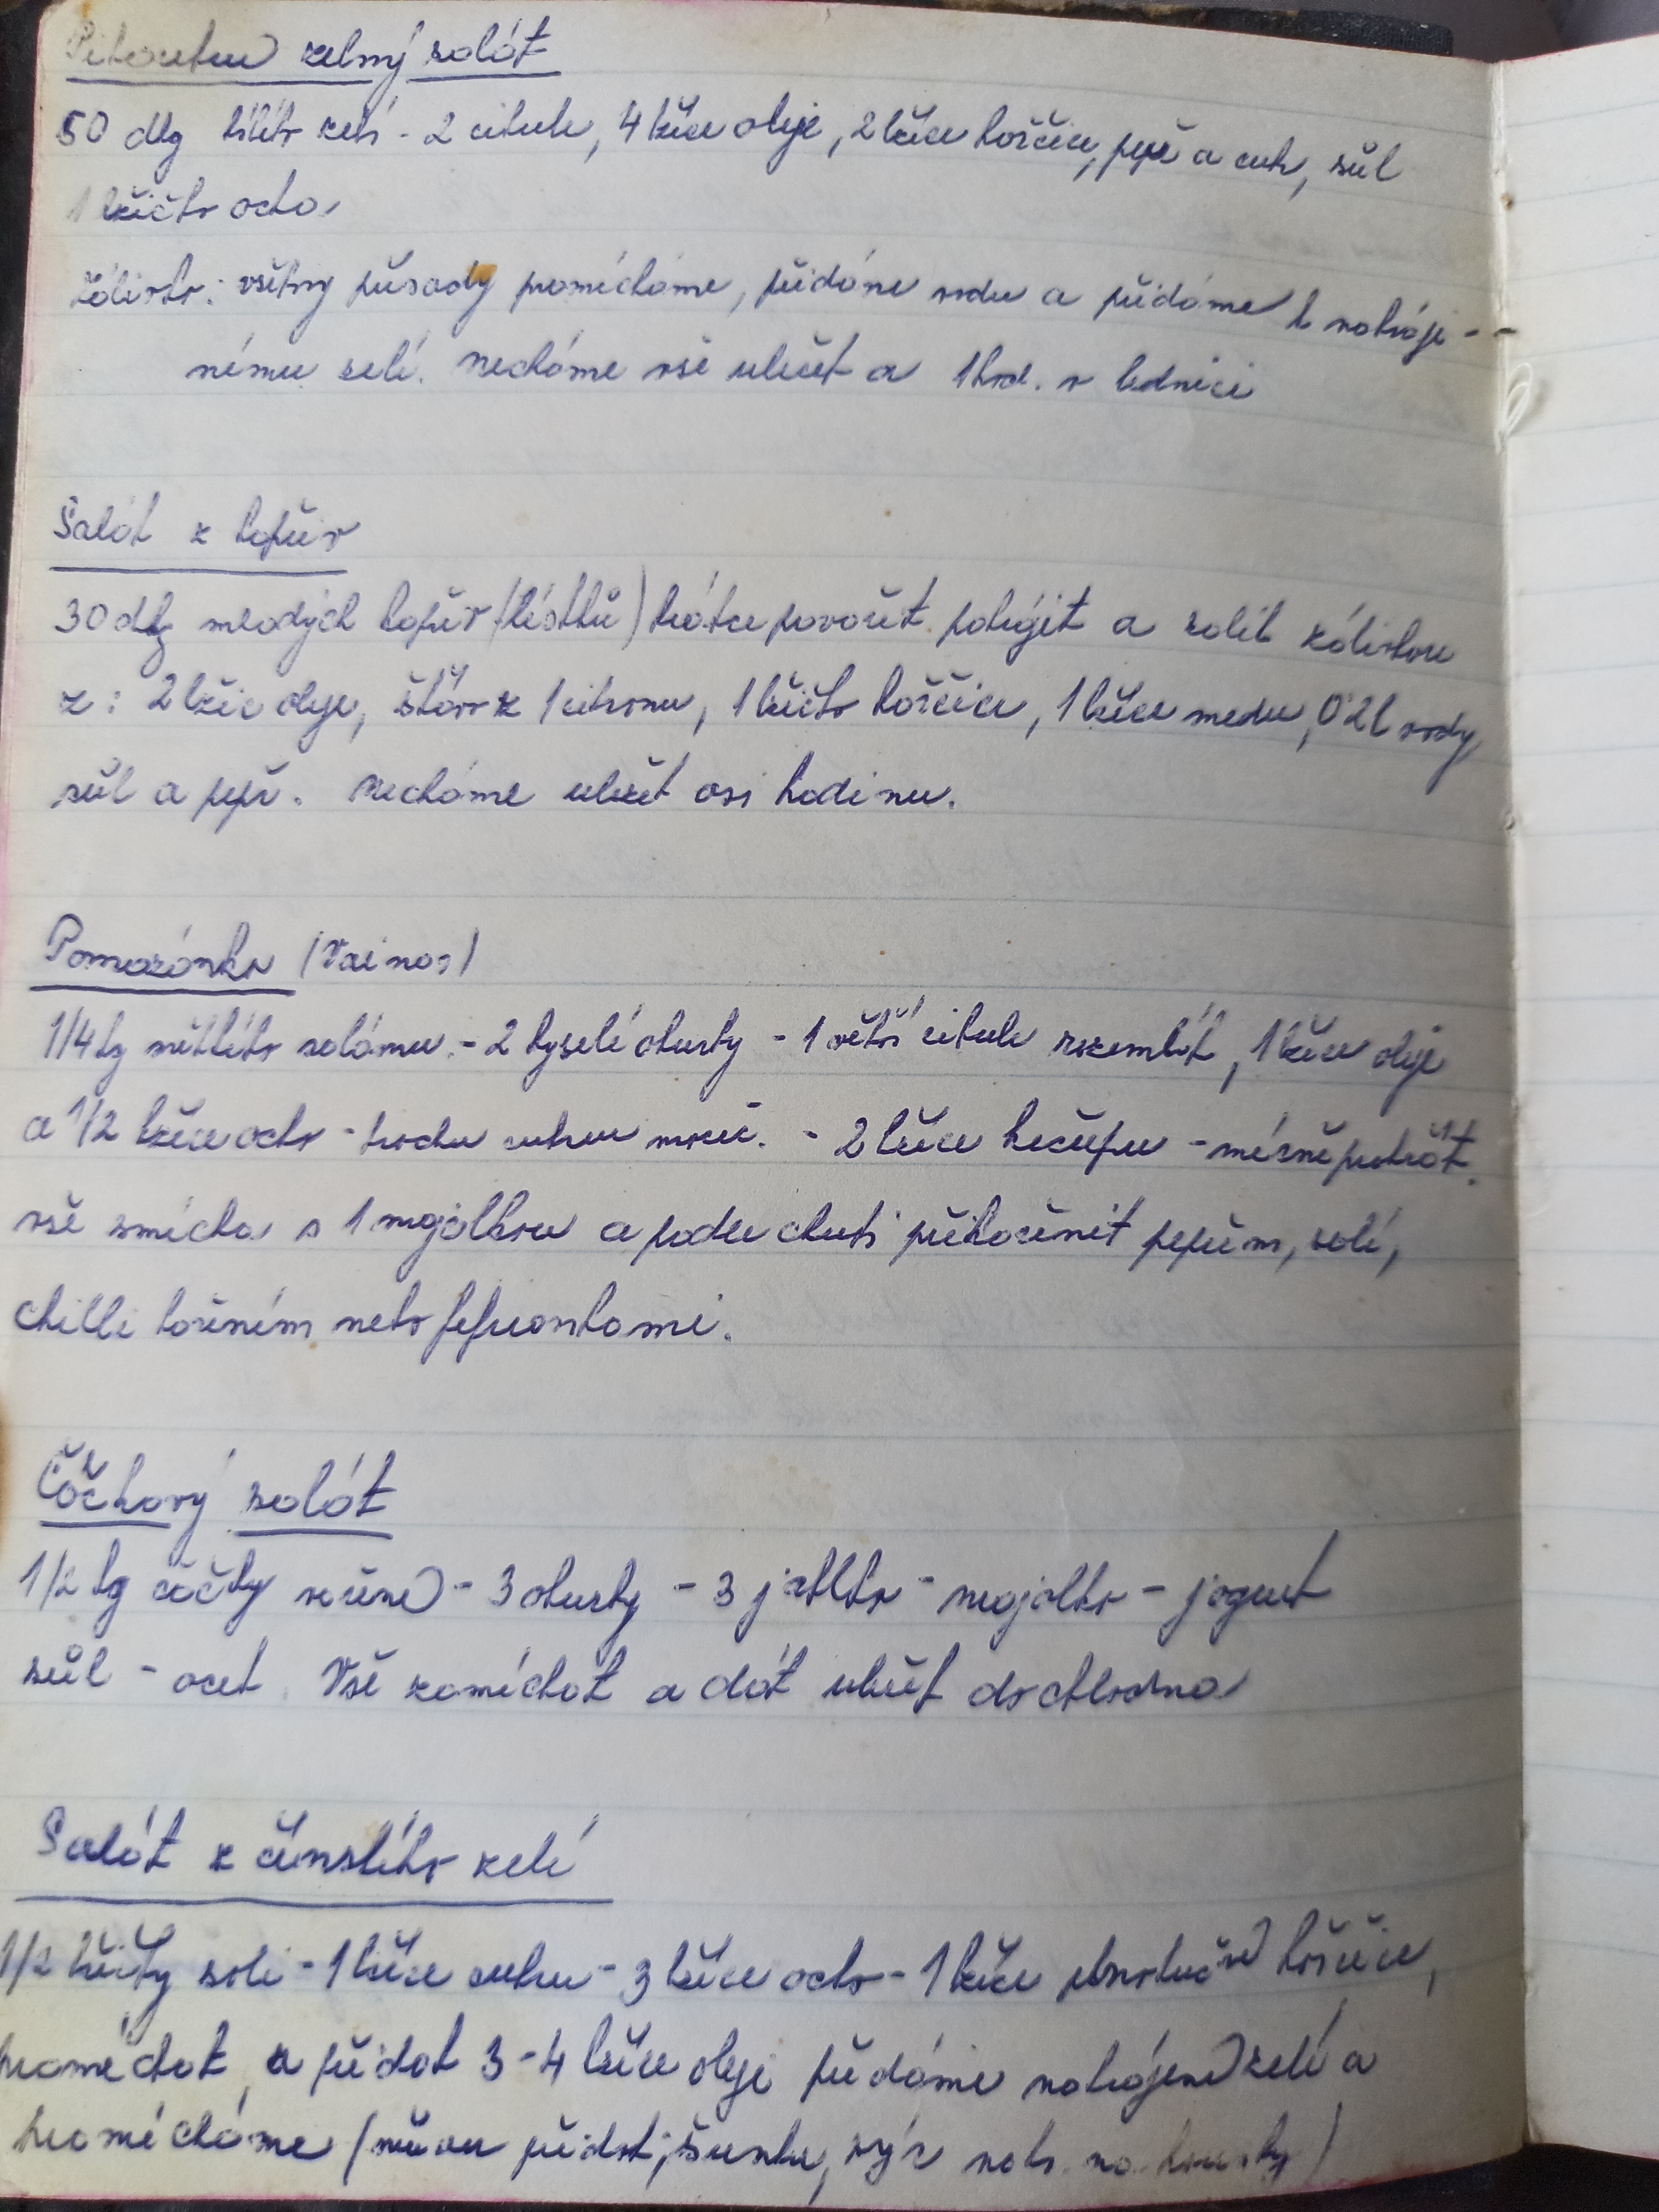 Pikantní zelný salát
50 dkg bílého zelí - 2 cibule, 4 lžíce oleje, 2 lžíce hořčice, pepř a cukr, sůl
1 lžička octa
Zálivka: všechny přísady promícháme, přidáme vodu a přidáme k nakráje-
nému zelí. Necháme vše uležet a 1 hod. v lednici
Salát z kopřiv
30 dkg mladých kopřiv (lístků) krátce povařit pokrájet a zalít zálivkou
z: 2 lžic oleje, šťáva z 1 citronu, 1 lžička hořčice, 1 lžíce medu, 0'2l vody
sůl a pepř. Necháme uležet asi hodinu.
Pomazánka
1/4 kg měkkého salámu. - 2 kyselé okurky - 1 větší cibule rozemlít, 1 lžíce oleje
a 1/2 lžíce octa - trochu cukru - 2 lžíce kečupu - mírně
vše smícha s 1 majolkou a podle chuti přikořenit pepřem, solí,
chilli kořením nebo feferonkami.
Čočkový salát
1/2 kg čočky vařené - 3 okurky - 3 jablka - majolka - jogurt
sůl - ocet. Vše zamíchat a dát uležet do chladna
Salát z čínského zelí
1/2 lžičky soli - 1 lžíce cukru - 3 lžíce octa - 1 lžíce plnotučné hořčice,
promíchat, a přidat 3-4 lžíce oleje přidáme nakrájené zelí a
promícháme (můžu přidat; šunku, sýr nakr. na kousky)